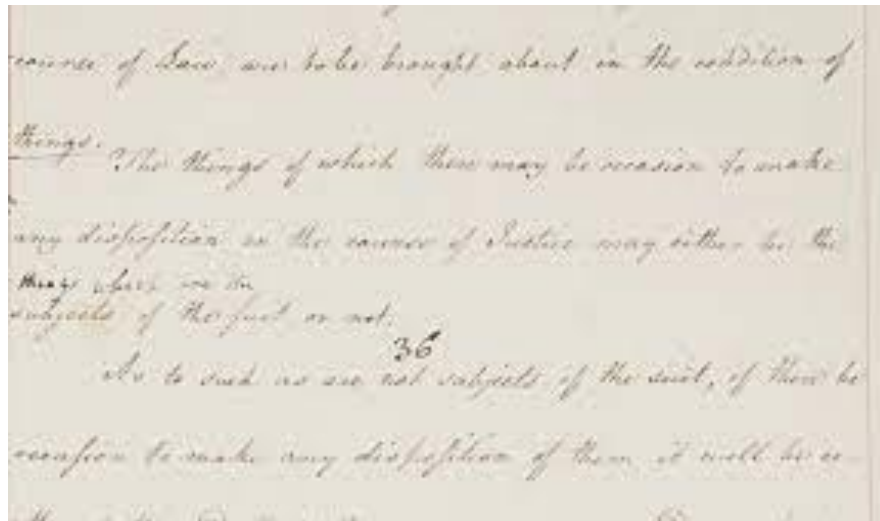 course of Law are to be brought about in the condition of
things.
The things of which there may be occasion to make
any disposition in the course of Justice may either be the
things which are the
subjects of the suit or not.
36
As to such as are not subjects of the suit, if there be
occasion to make any disposition of them it will be